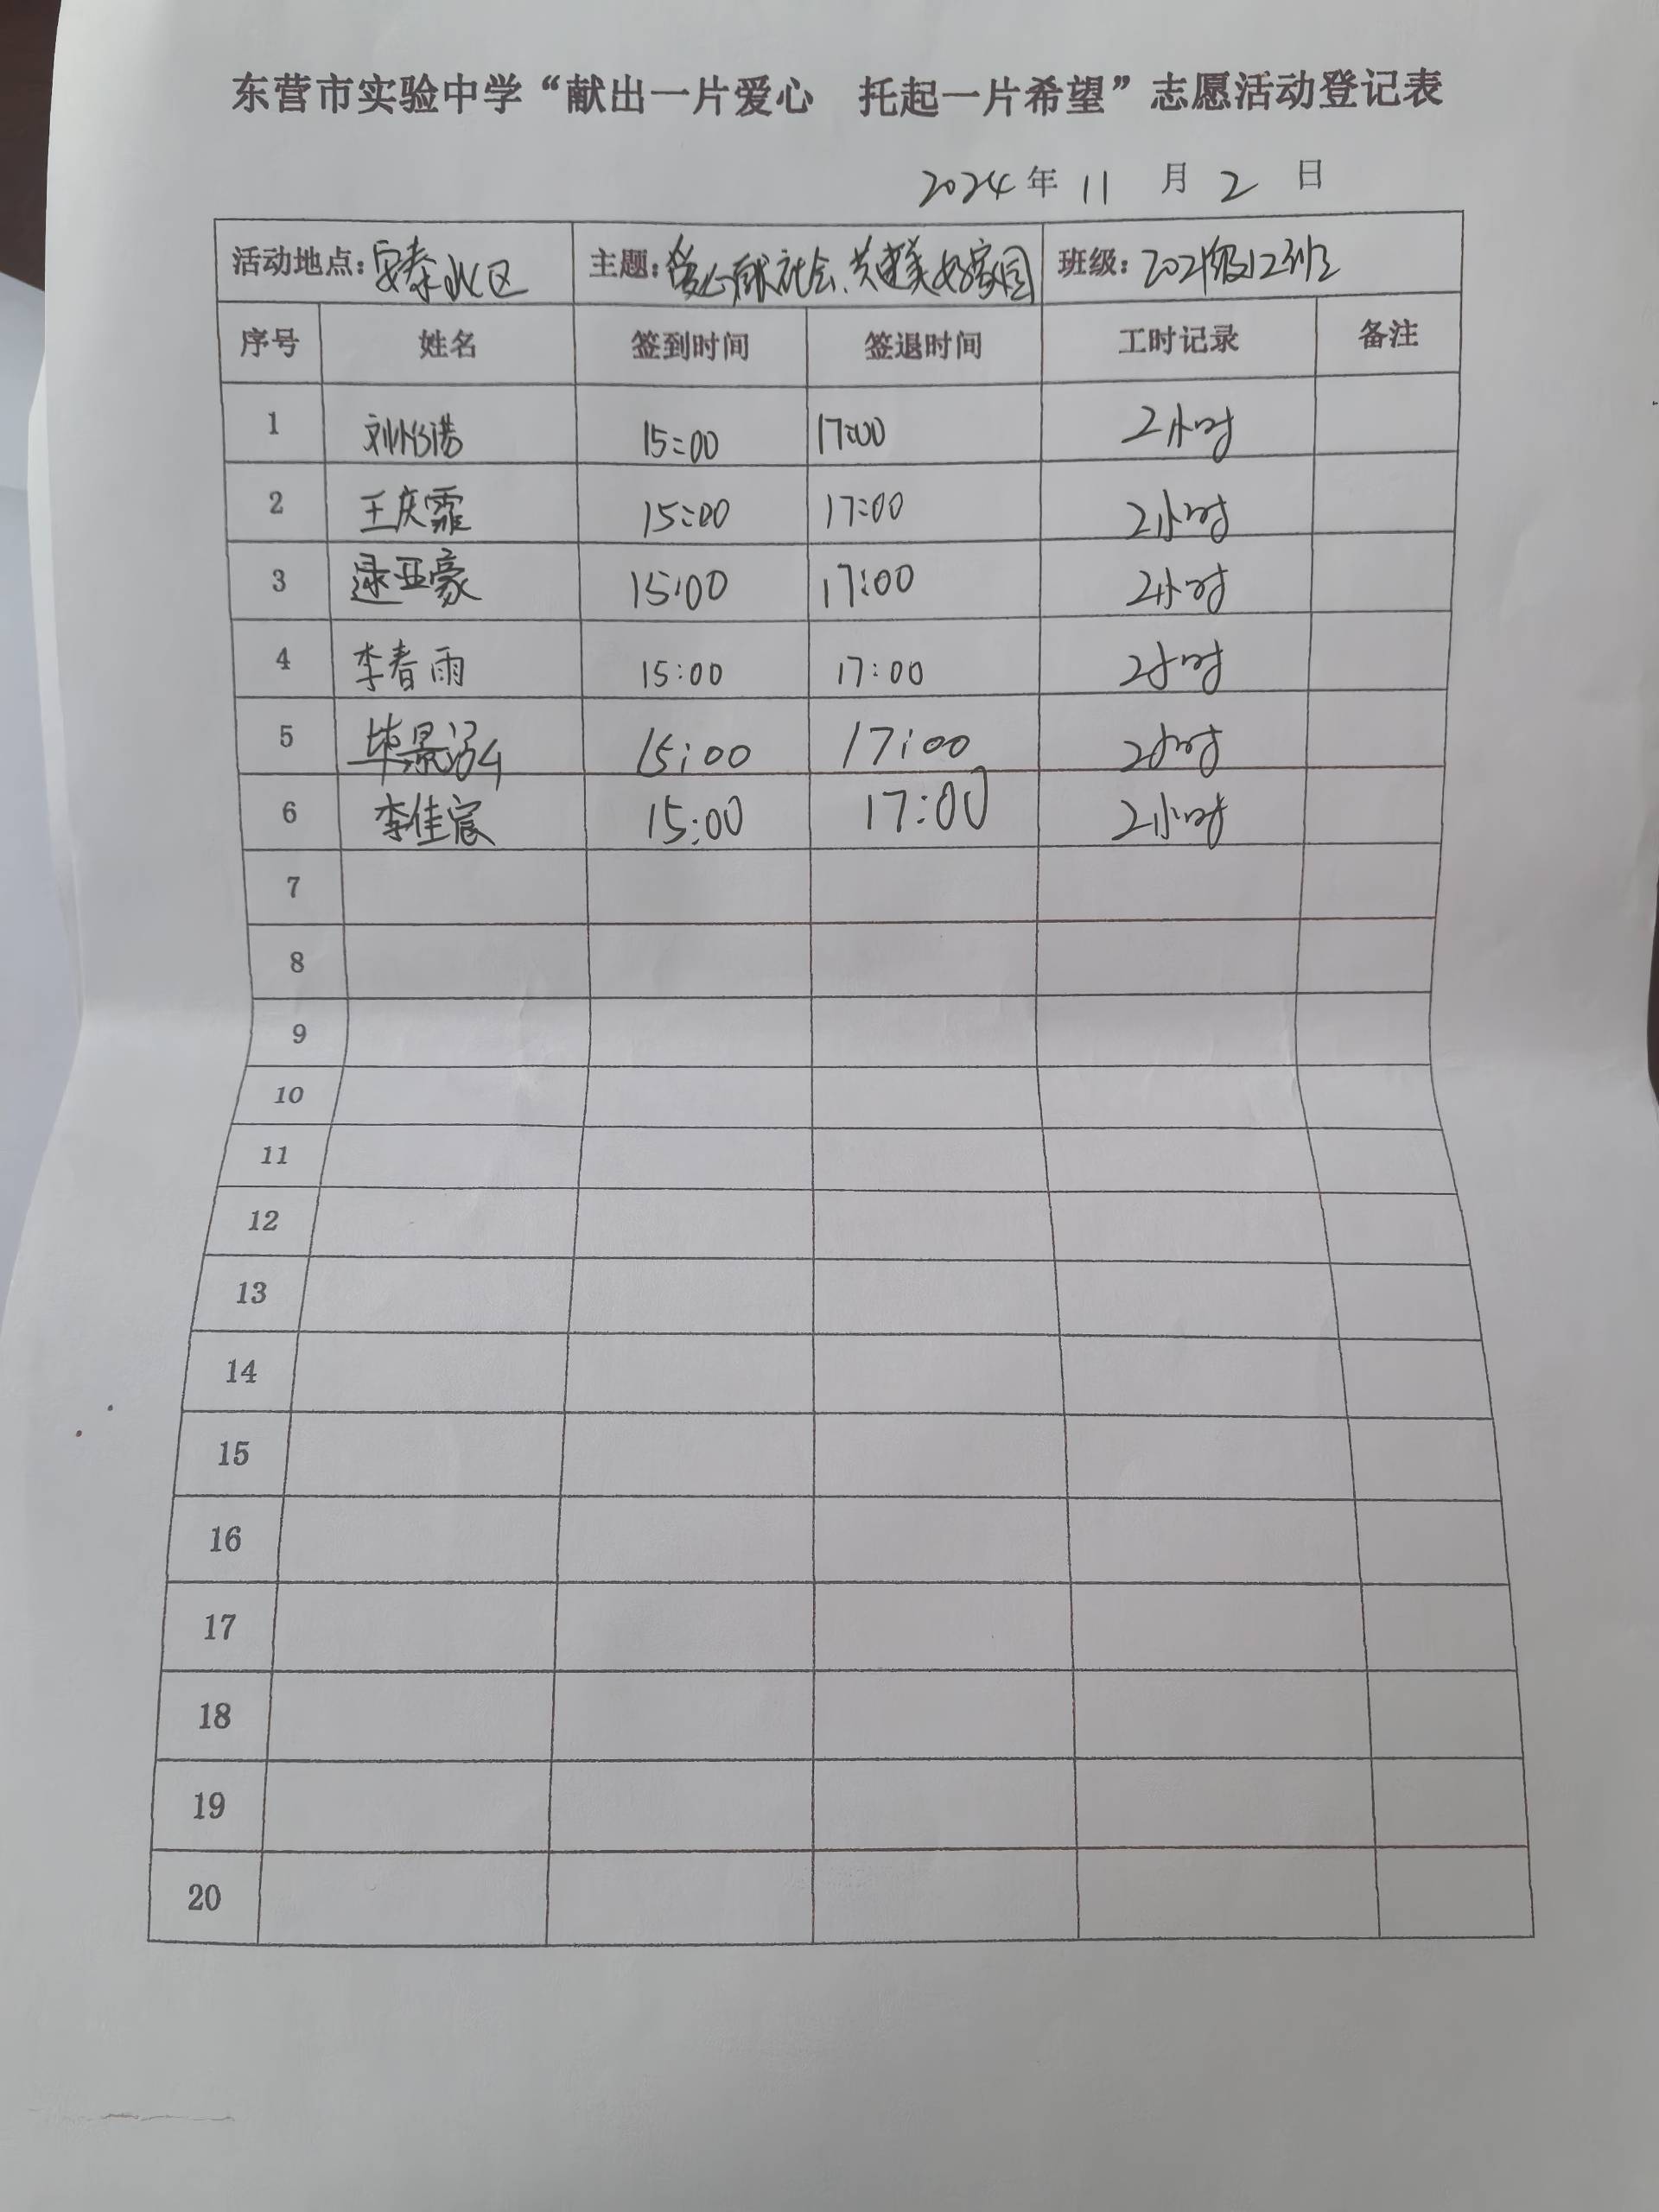 东营市实验中学“献出一片爱心 托起一片希望”志愿活动登记表
2024年 11 月 2 日
活动地点：安泰北区 主题：爱心献社会、共建美好家园 班级：2021级12班
序号 姓名 签到时间 签退时间 工时记录 备注
1 刘浩 15:00 17:00 2小时
2 王庆霏 15:00 17:00 2小时
3 逯亚豪 15:00 17:00 2小时
4 李春雨 15:00 17:00 2小时
5 毕景泓 15:00 17:00 2小时
6 李佳宸 15:00 17:00 2小时
7
8
9
10
11
12
13
14
15
16
17
18
19
20